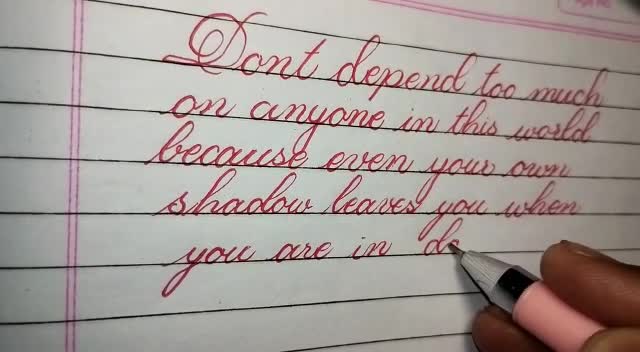 Dont depend too much
on anyone in this world
because even your own
shadow leaves you when
you are in da